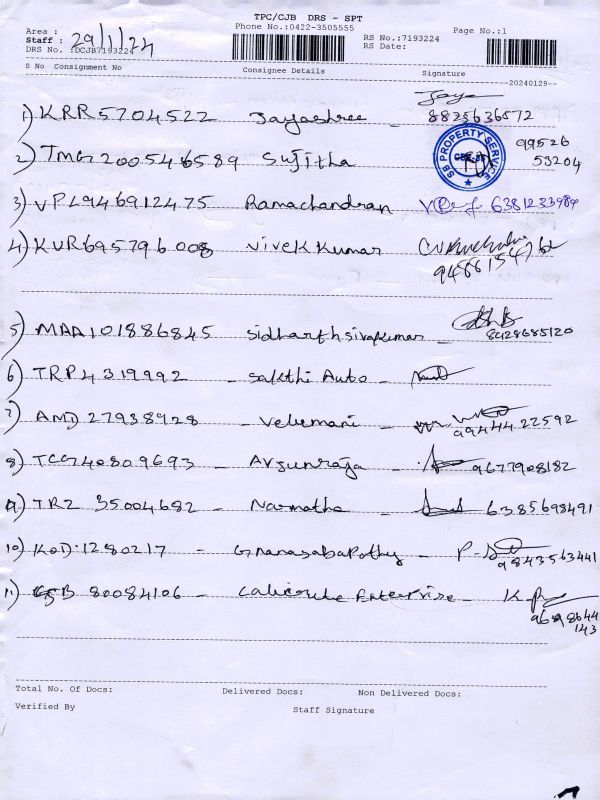 TPC/CJB DRS - SPT
Phone No.:0422-3505555
Page No.:1
Area :
Staff : 29/1/24
DRS No. :DCJB7193224
RS No.:7193224
RS Date:
S No Consignment No Consignee Details Signature
20240129
1) KRR5704522 Jayashree - Jaya
8825636572
2) TMG200546589 Sujitha
SB PROPERTY SERVICE
99526
53204
3) VPL946912475 Ramachandran 6381233984
4) KVR695796008 Vivek Kumar
9488154762
5) MAA101886845 Sidharthsivakumar -
8428685120
6) TRP4319992 - Sakthi Auto -
7) AMD27938928 - Velumani -
99444 22592
8) TCG40809693 - Arjunraja - 9677908182
9) TRZ 35004682 - Narmatha - 6385698491
10) KOD1280217 - Gnanasabapathy -
9843563441
11) 80084106 - Enterprise -
143
Total No. Of Docs: Delivered Docs: Non Delivered Docs:
Verified By Staff Signature